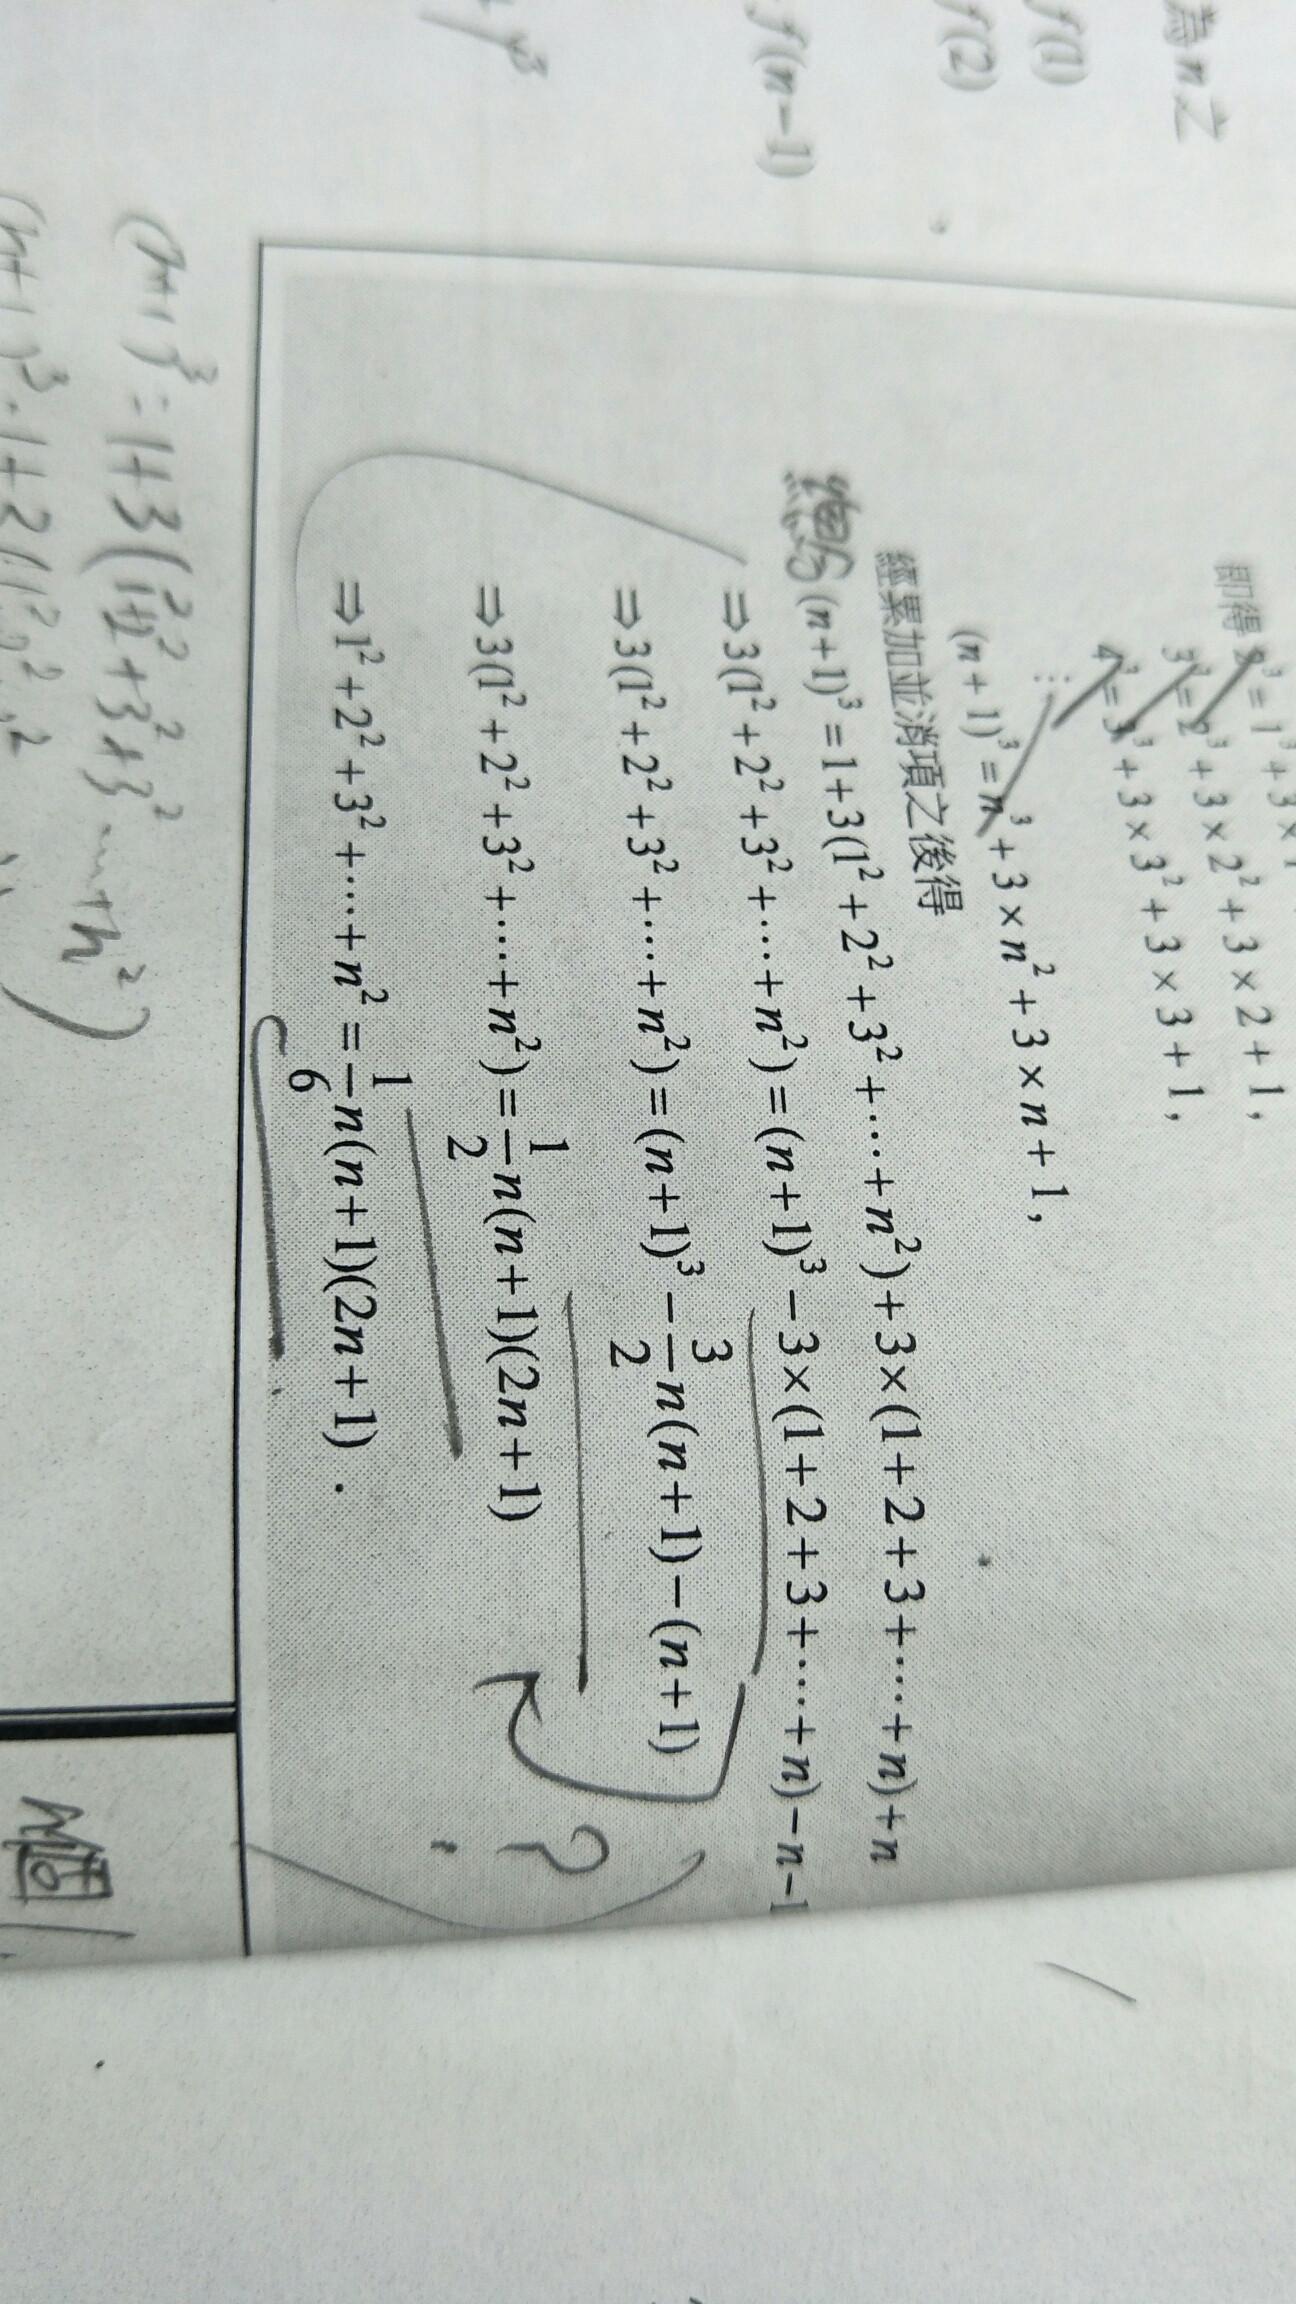 為 n 之
f(1)
f(2)
f(n−1)
即得 2³=1³+3×1
3³=2³+3×2²+3×2+1,
4³=3³+3×3²+3×3+1,
⋮
(n+1)³=n³+3×n²+3×n+1,
經累加並消項之後得
(n+1)³=1+3(1²+2²+3²+⋯+n²)+3×(1+2+3+⋯+n)+n
⇒3(1²+2²+3²+⋯+n²)=(n+1)³−3×(1+2+3+⋯+n)−n−1
⇒3(1²+2²+3²+⋯+n²)=(n+1)³−3/2 n(n+1)−(n+1)
⇒3(1²+2²+3²+⋯+n²)=1/2 n(n+1)(2n+1)
?
⇒1²+2²+3²+⋯+n²=1/6 n(n+1)(2n+1).
(n+1)³=1+3(
+n²)
n個1